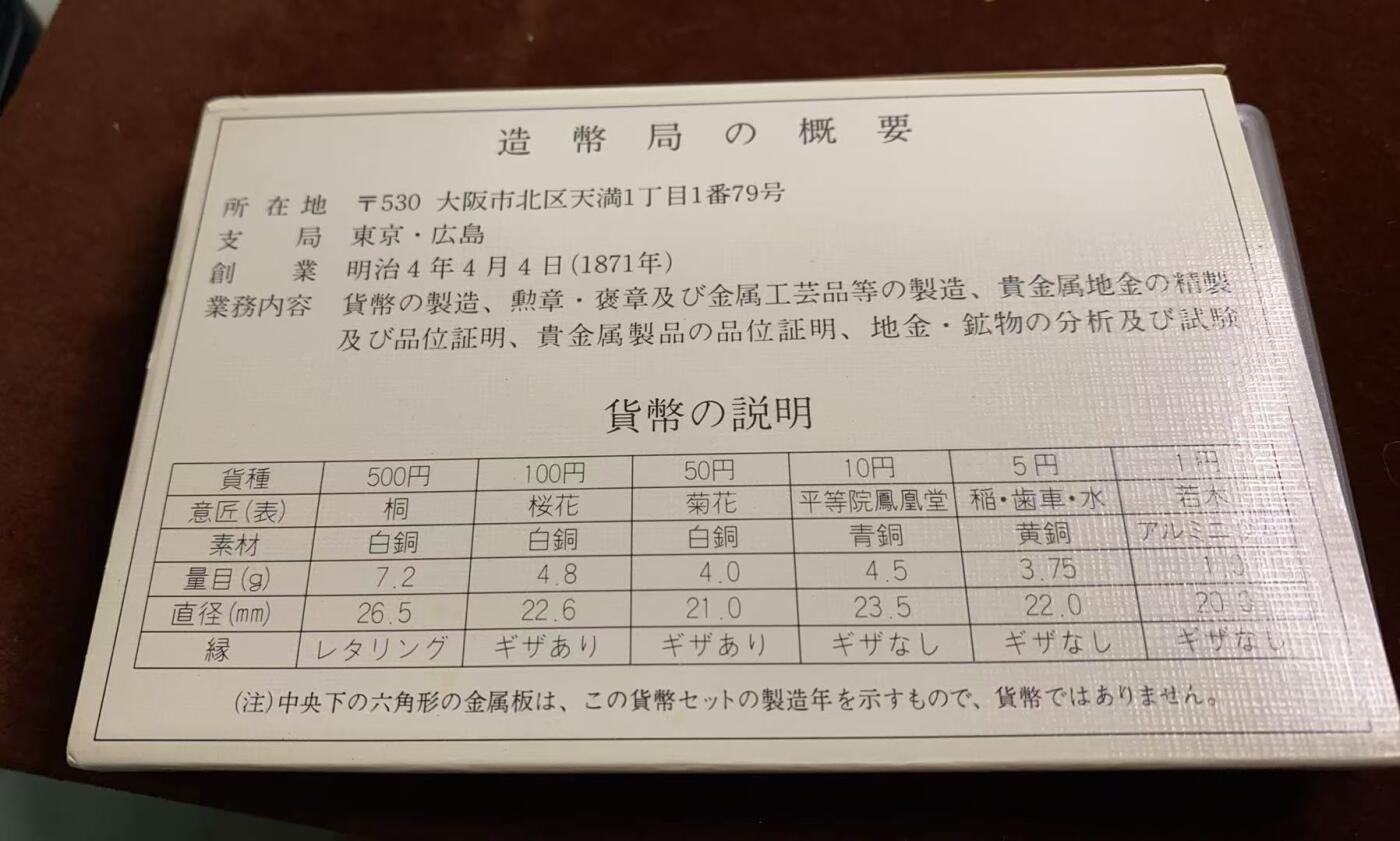 造幣局の概要
所在地 〒530 大阪市北区天満1丁目1番79号
支局 東京・広島
創業 明治4年4月4日(1871年)
業務内容 貨幣の製造、勲章・褒章及び金属工芸品等の製造、貴金属地金の精製
及び品位証明、貴金属製品の品位証明、地金・鉱物の分析及び試験
貨幣の説明
貨種 500円 100円 50円 10円 5円 1円
意匠(表) 桐 桜花 菊花 平等院鳳凰堂 稲・歯車・水 若木
素材 白銅 白銅 白銅 青銅 黄銅 アルミニ
量目(g) 7.2 4.8 4.0 4.5 3.75 1.0
直径(mm) 26.5 22.6 21.0 23.5 22.0 20.0
縁 レタリング ギザあり ギザあり ギザなし ギザなし ギザなし
(注)中央下の六角形の金属板は、この貨幣セットの製造年を示すもので、貨幣ではありません。